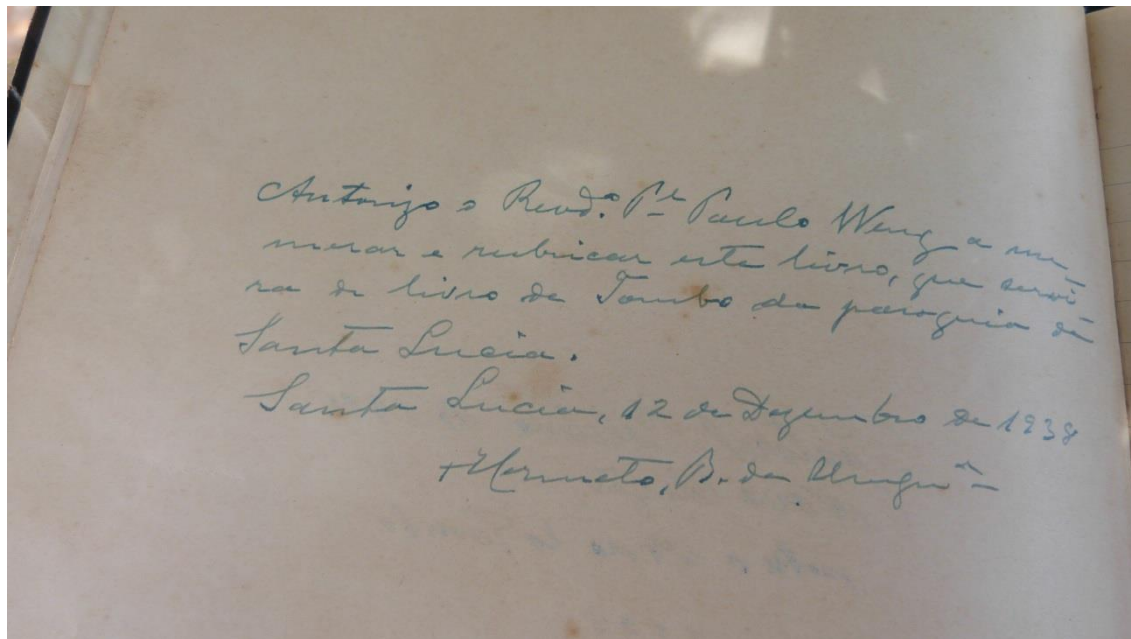 Autorizo o Revdº. Pe. Paulo Weng a nu-
merar e rubricar este livro, que servi-
ra de livro de Tombo da paroquia de
Santa Lucia.
Santa Lucia, 12 de Dezembro de 1938
+ Hermeto, B. de Urugna